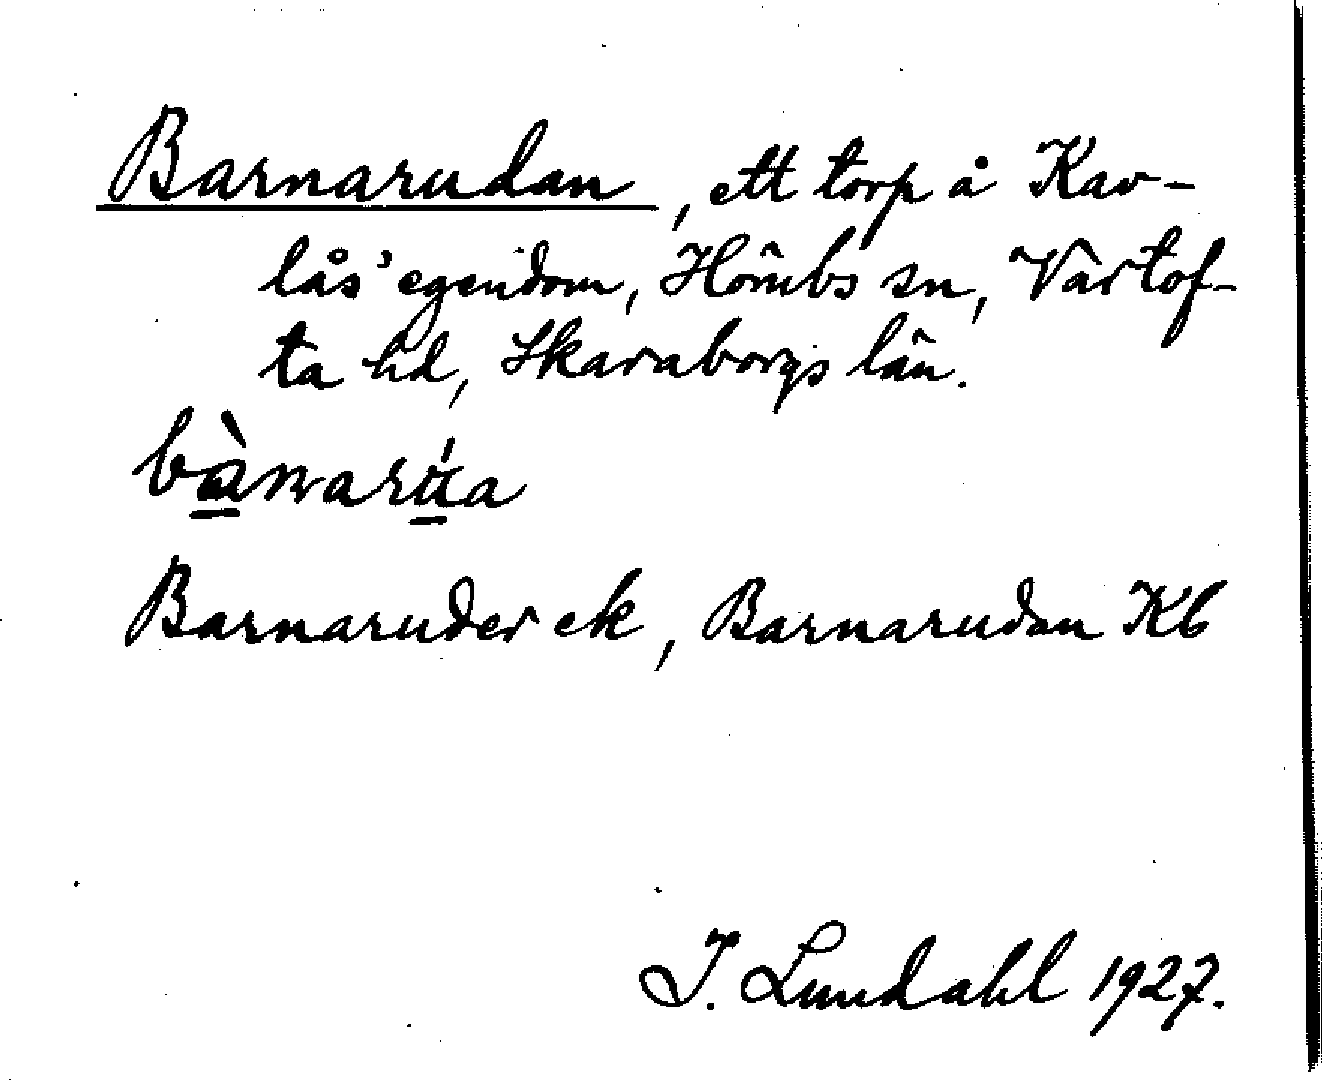 Barnarudan, ett torp å Kav-
lås' egendom, Hömbs sn, Vartof-
ta hd, Skaraborgs län.
Barnaruder ek, Barnarudan Kb
I. Lundahl 1927.